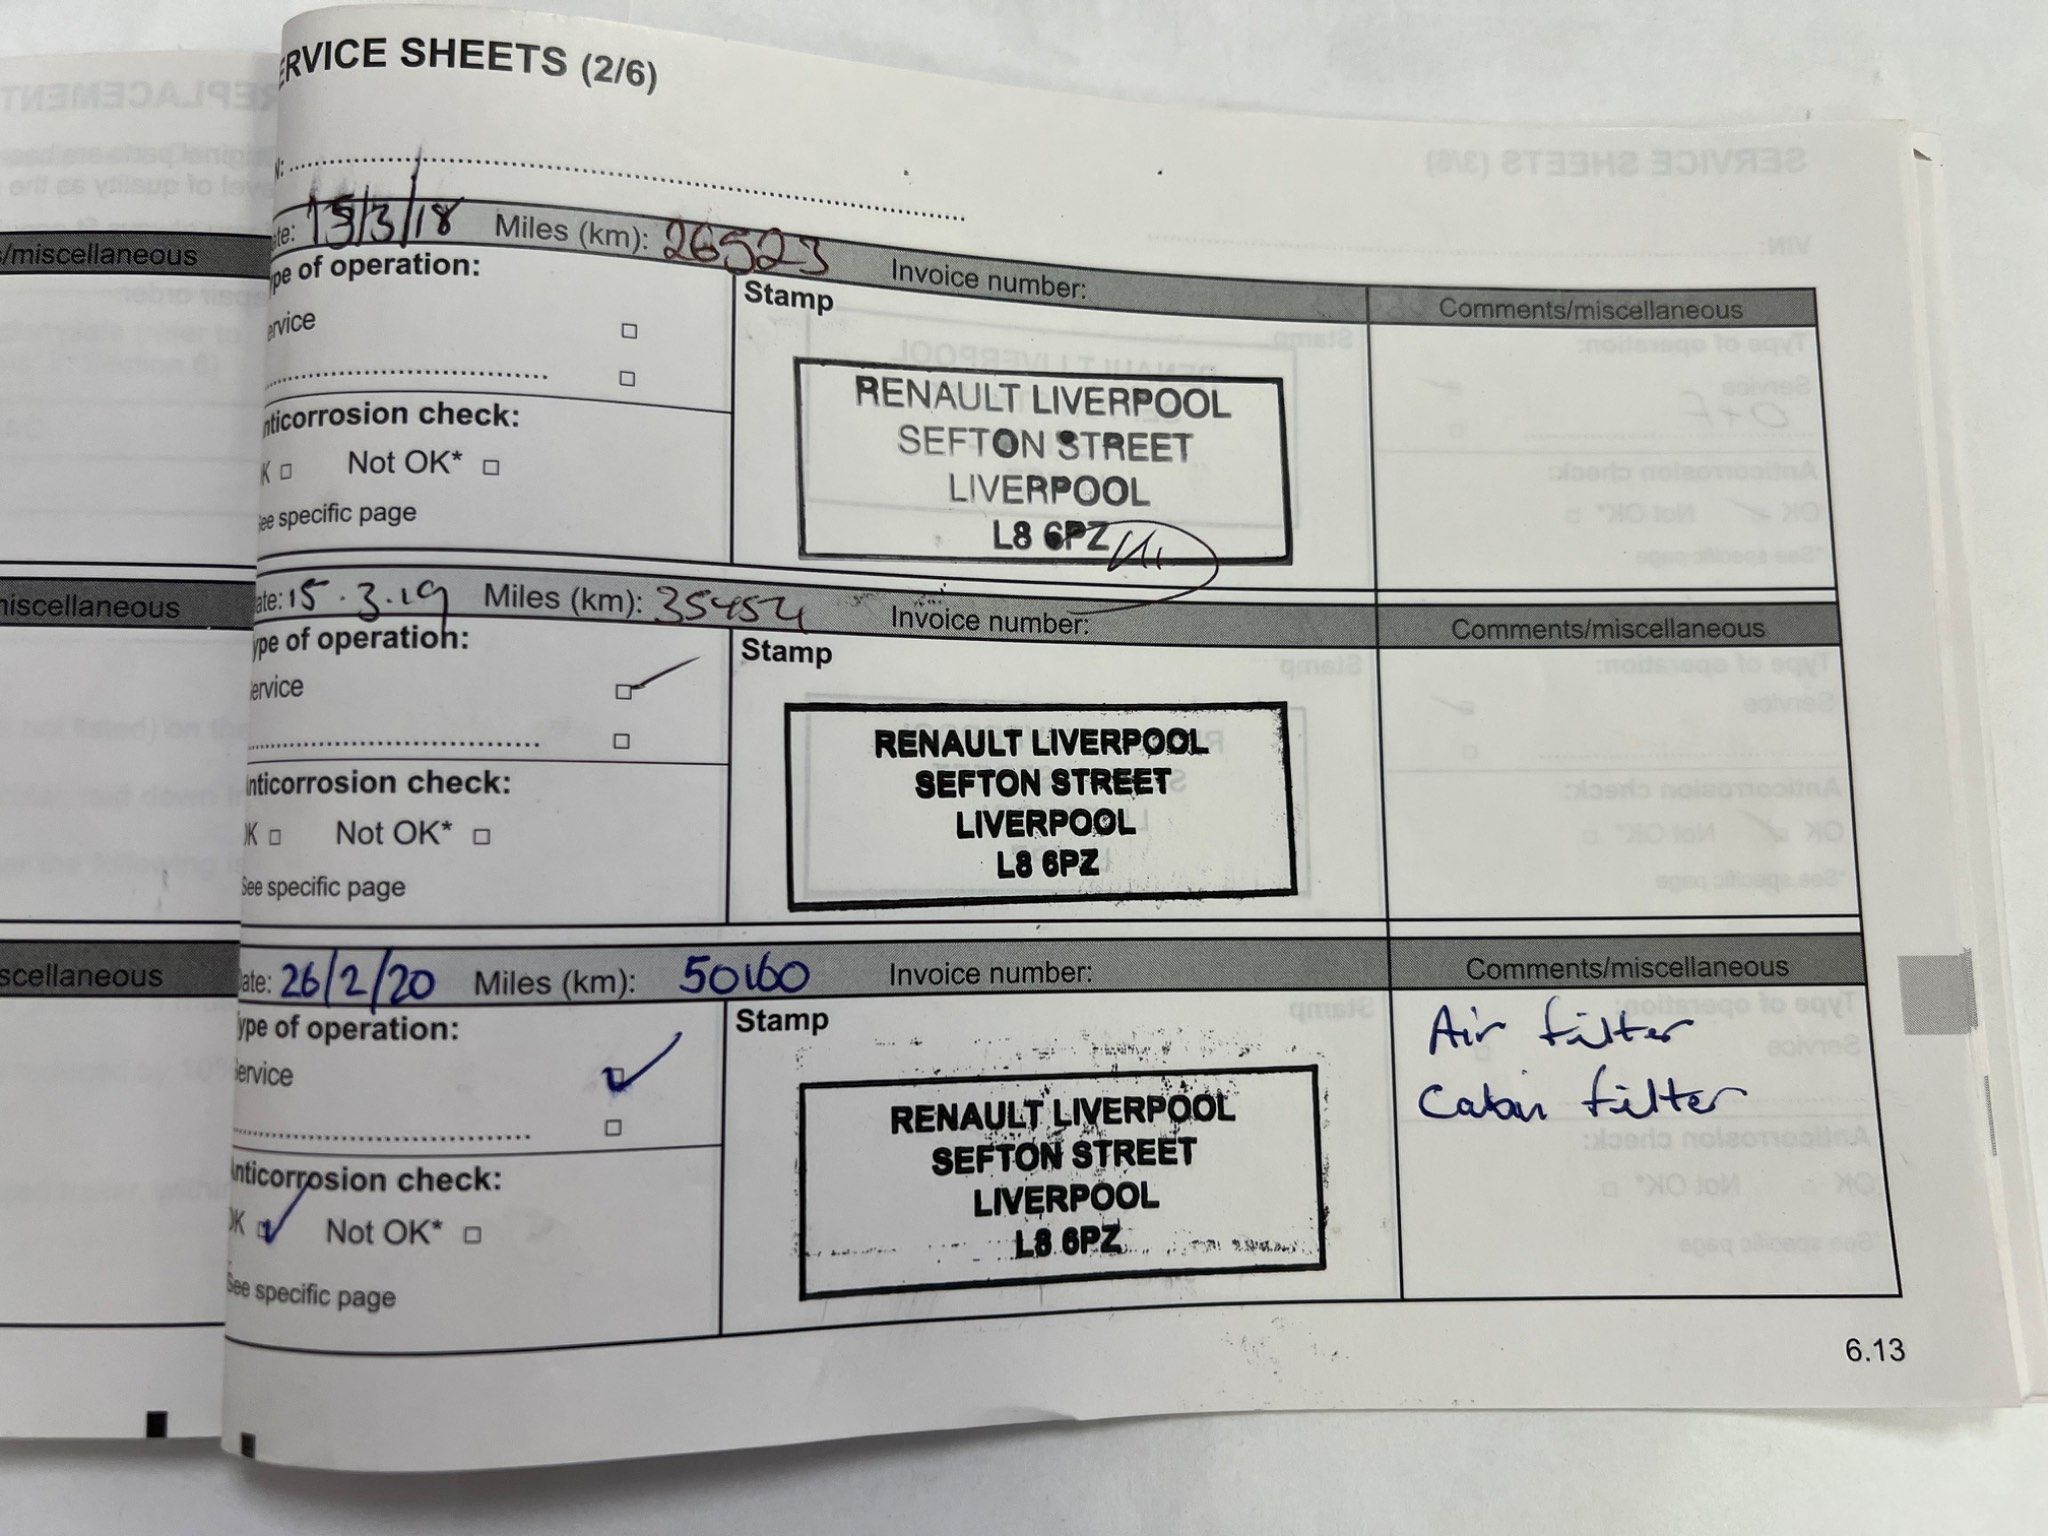 ERVICE SHEETS (2/6)
ate: 15/3/18 Miles (km): 26523 Invoice number:
Comments/miscellaneous
ype of operation:
Stamp
ervice
nticorrosion check:
K Not OK*
ee specific page
RENAULT LIVERPOOL
SEFTON STREET
LIVERPOOL
L8 6PZ
ate: 15.3.19 Miles (km): 35454 Invoice number:
Comments/miscellaneous
ype of operation:
Stamp
ervice
nticorrosion check:
OK Not OK*
See specific page
RENAULT LIVERPOOL
SEFTON STREET
LIVERPOOL
L8 6PZ
Date: 26/2/20 Miles (km): 50160 Invoice number:
Comments/miscellaneous
ype of operation:
Stamp
Service
Anticorrosion check:
OK Not OK*
See specific page
RENAULT LIVERPOOL
SEFTON STREET
LIVERPOOL
L8 6PZ
Air filter
Cabin filter
6.13
s/miscellaneous
miscellaneous
scellaneous